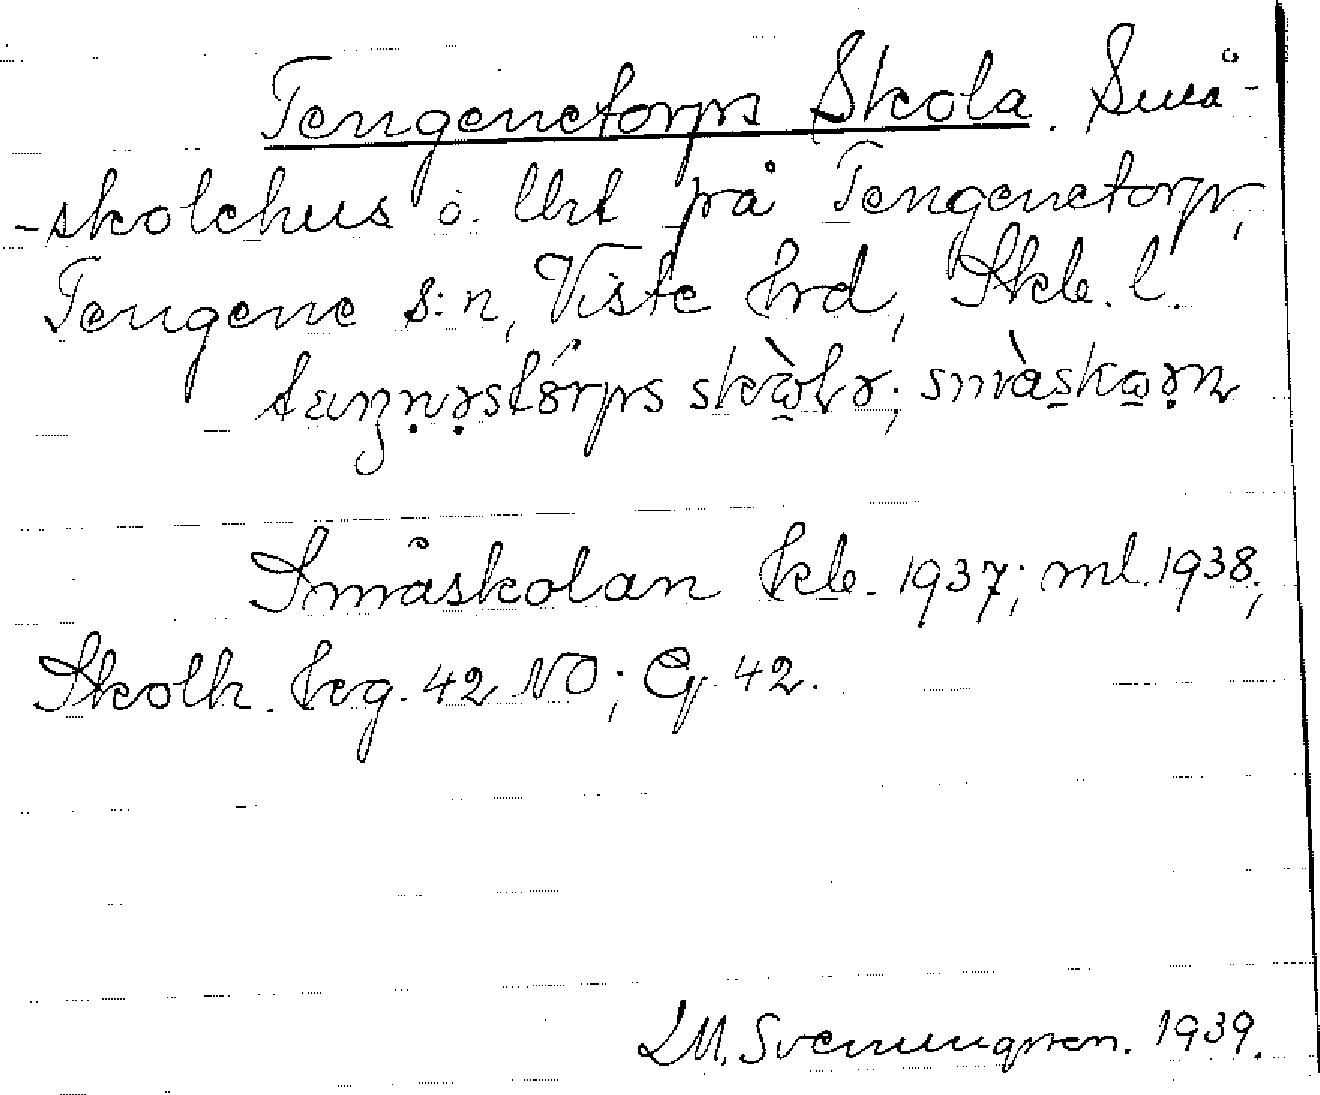 Tengenetorps Skola. Små-
-skolehus o. lht på Tengenetorp,
Tengene s:n, Viste hrd, Skb. l.
småskolan
Småskolan hkb. 1937; ml. 1938;
Skolh. hcg. 42 NO; Eg. 42.
LM. Svenungsson. 1939.